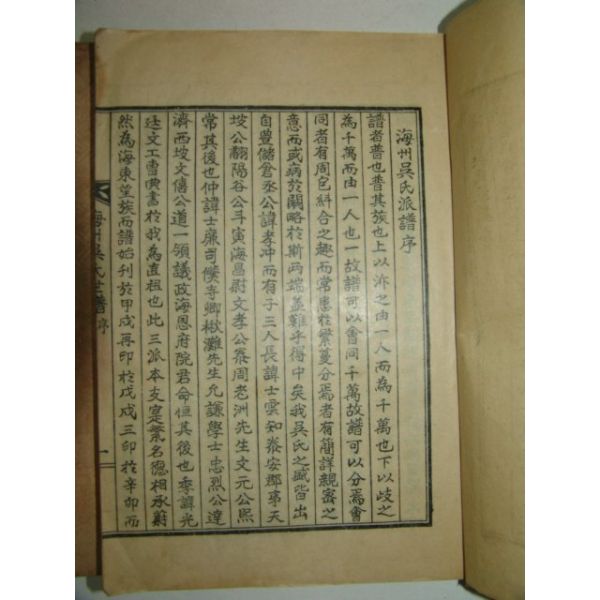 海州吳氏派譜序
譜者普也普其族也上以泝之由一人而為千萬也下以歧之
為千萬而由一人也一故譜可以會同千萬故譜可以分焉會
同者有周包糾合之趣而常患於繁蔓分焉者有簡詳親密之
意而或病於闕略於斯兩端盖難乎得中矣我吳氏之蹟皆出
自豊儲倉丞公諱孝冲而有子三人長諱士雲知泰安郡事天
坡公翻陽谷公斗寅海昌尉文孝公泰周老洲先生文元公熙
常其後也仲諱士廉司僕寺卿楸灘先生允謙學士忠烈公達
濟西坡文僖公道一領議政海恩府院君命恒其後也季諱光
廷文工曹典書於我為直祖也此三派本支寔繁名德相承蔚
然為海東望族而譜始刋於甲戌再印於戊戌三印於辛卯而
海州吳氏世譜 序 一